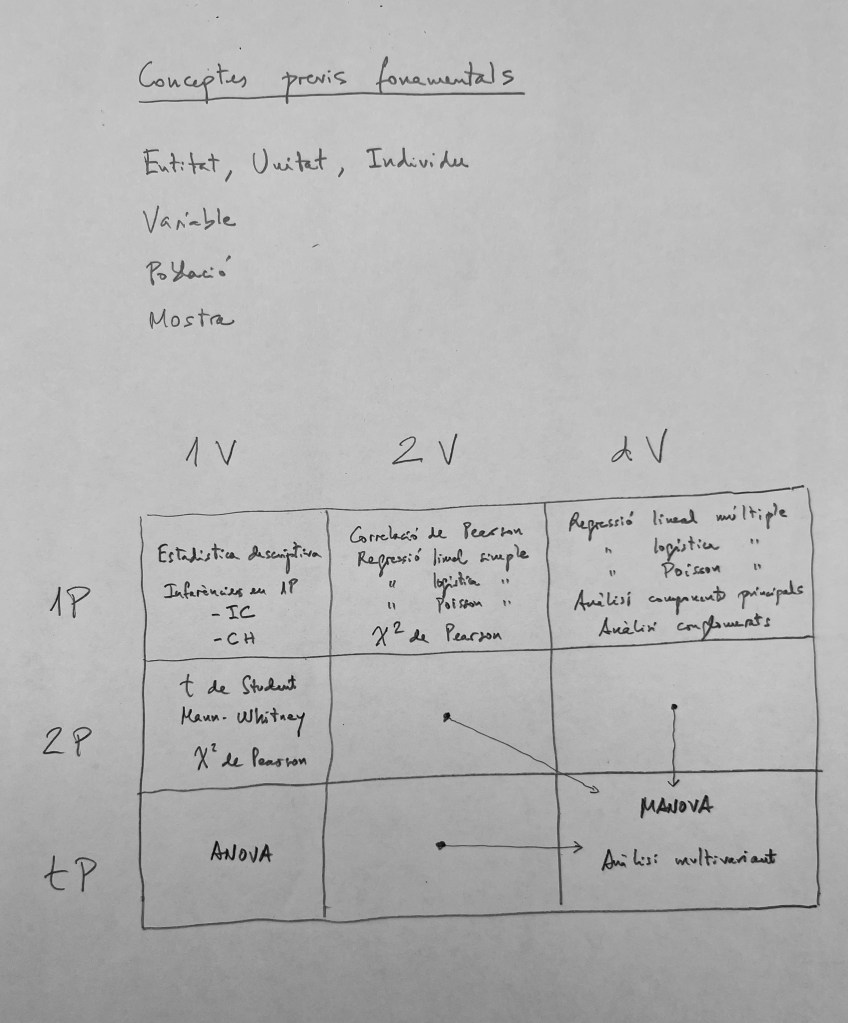 Conceptes previs fonamentals
Entitat, Unitat, Individu
Variable
Població
Mostra
1V 2V dV
1P
Estadística descriptiva
Inferències en 1P
- IC
- CH
Correlació de Pearson
Regressió lineal simple
" logística "
" Poisson "
χ² de Pearson
Regressió lineal múltiple
" logística "
" Poisson "
Anàlisi components principals
Anàlisi conglomerats
2P
t de Student
Mann-Whitney
χ² de Pearson
tP
ANOVA
MANOVA
Anàlisi multivariant